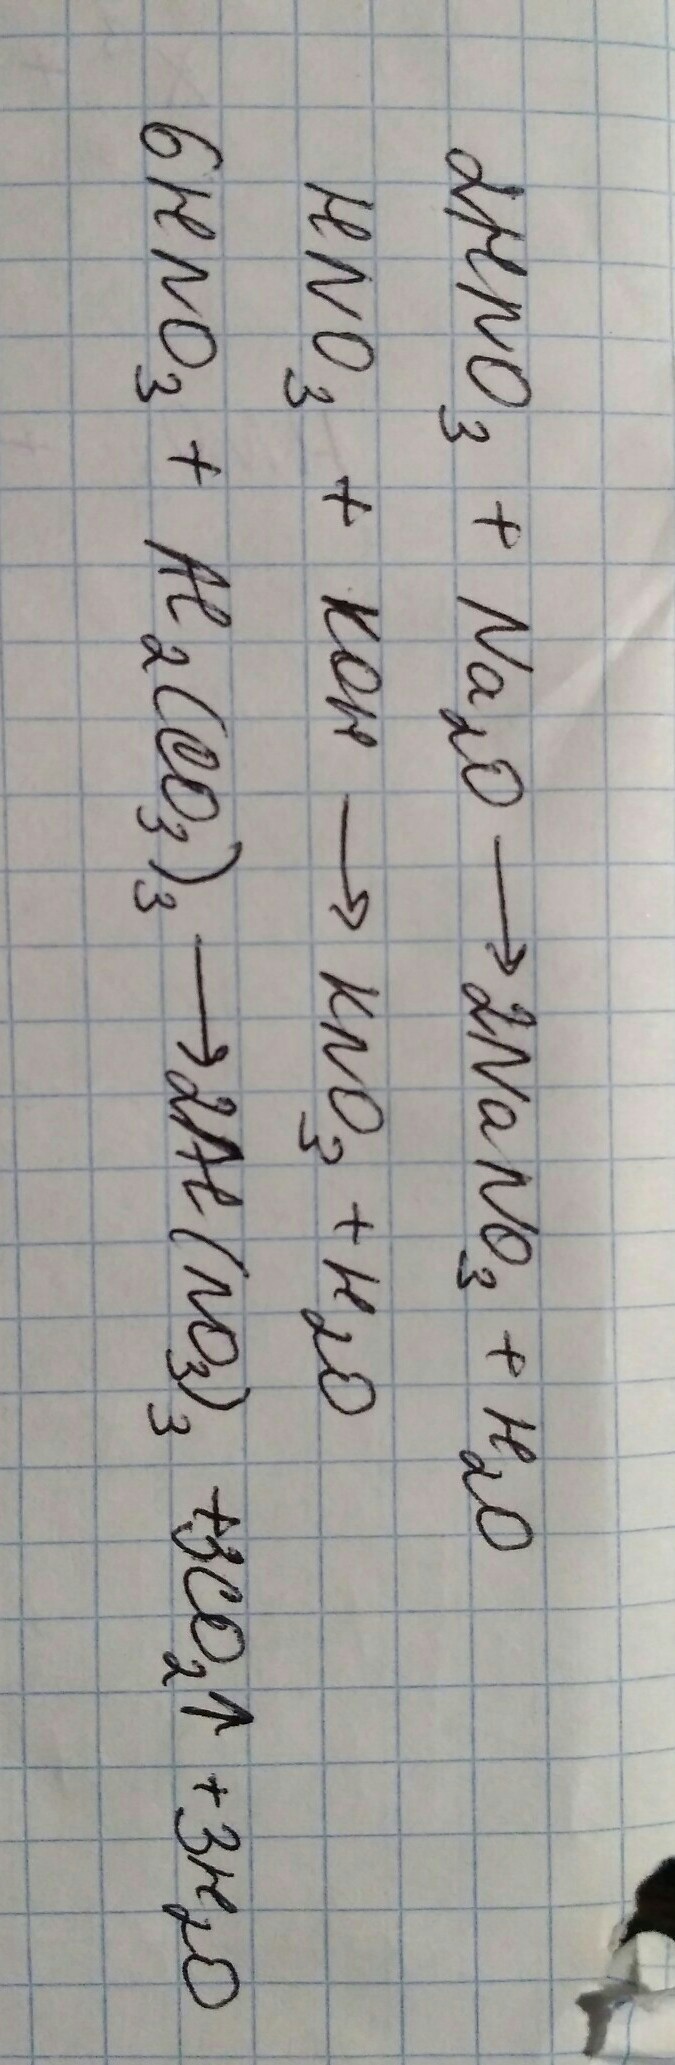 2HNO₃ + Na₂O → 2NaNO₃ + H₂O
HNO₃ + KOH → KNO₃ + H₂O
6HNO₃ + Al₂(CO₃)₃ → 2Al(NO₃)₃ + 3CO₂↑ + 3H₂O